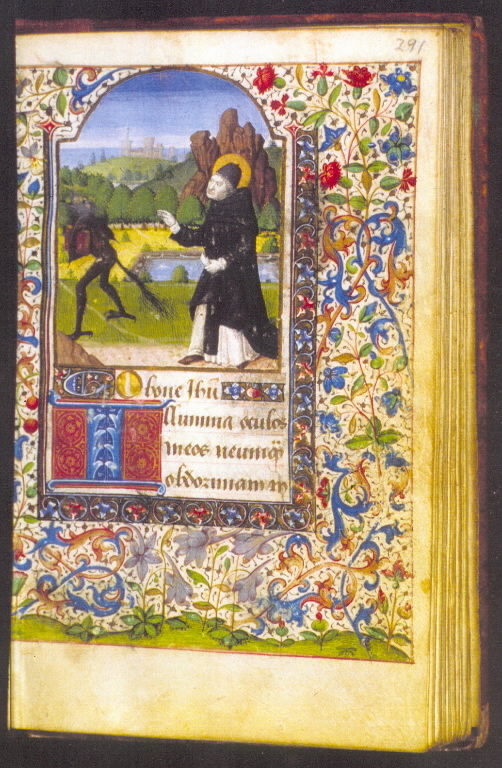 291
O bone Ihu
Illumina oculos
meos ne umq̄
obdormiam in